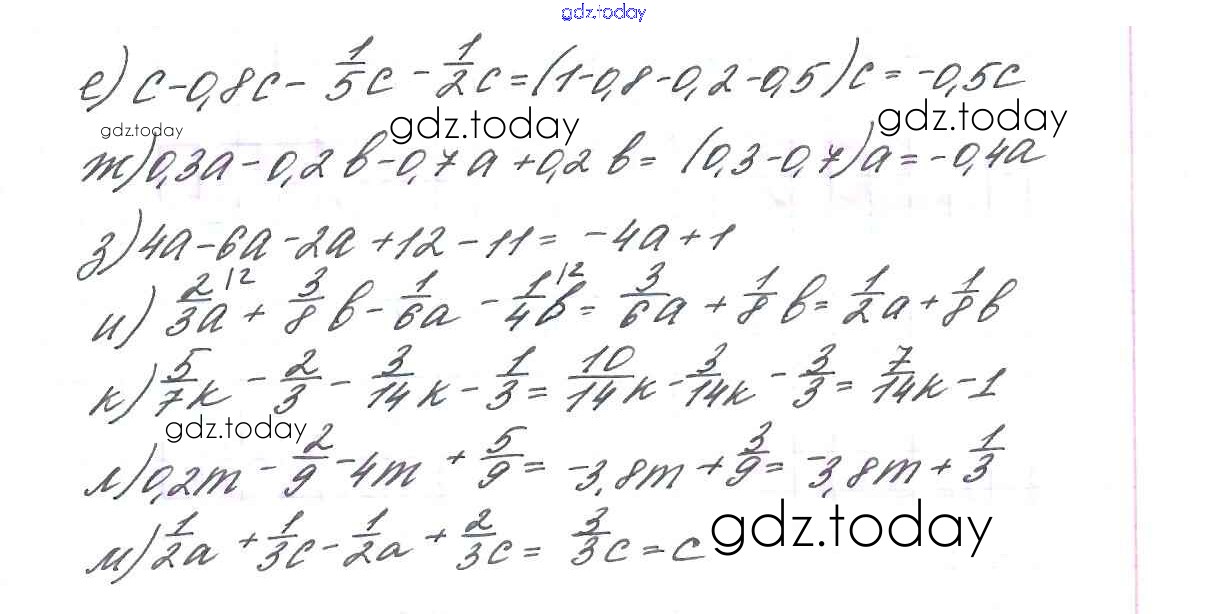 gdz.today
е) c-0,8c-1/5c-1/2c=(1-0,8-0,2-0,5)c=-0,5c
gdz.today gdz.today gdz.today
ж) 0,3a-0,2b-0,7a+0,2b=(0,3-0,7)a=-0,4a
з) 4a-6a-2a+12-11=-4a+1
и) 2/3a|2+3/8b-1/6a-1/4b|2=3/6a+1/8b=1/2a+1/8b
к) 5/7k-2/3-3/14k-1/3=10/14k-3/14k-3/3=7/14k-1
gdz.today
л) 0,2m-2/9-4m+5/9=-3,8m+3/9=-3,8m+1/3
м) 1/2a+1/3c-1/2a+2/3c=3/3c=c
gdz.today